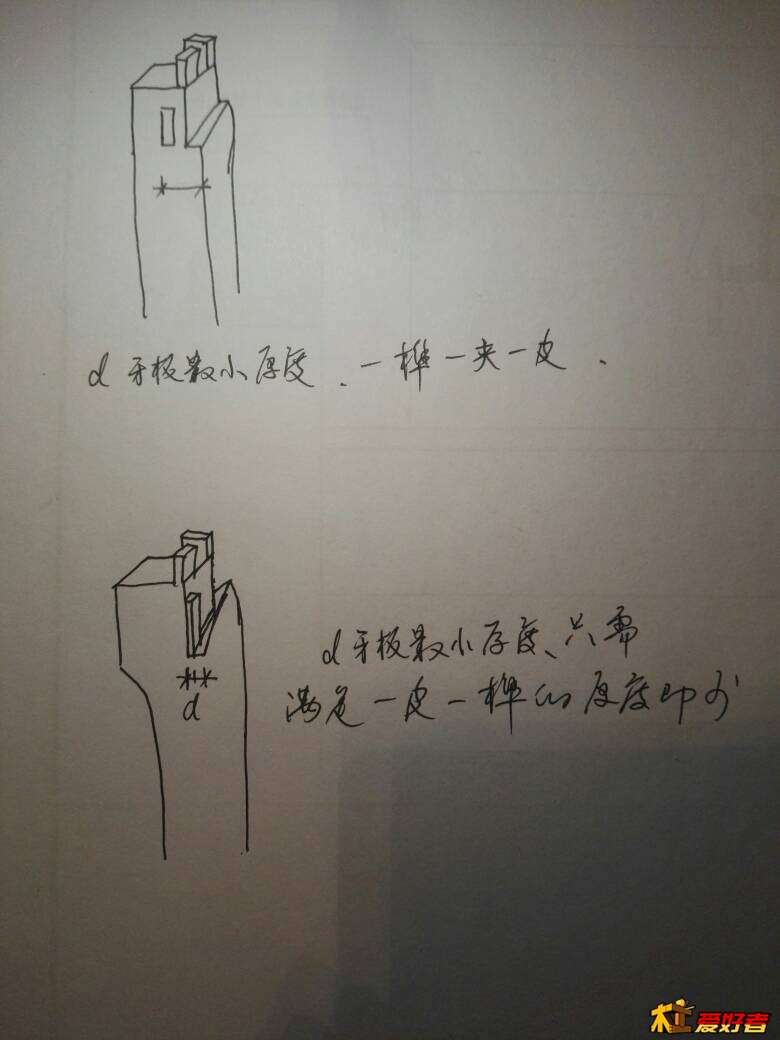 d 牙板最小厚度、一榫一夹一皮.
d
d 牙板最小厚度、只需
满足一皮一榫的厚度即可
木工爱好者